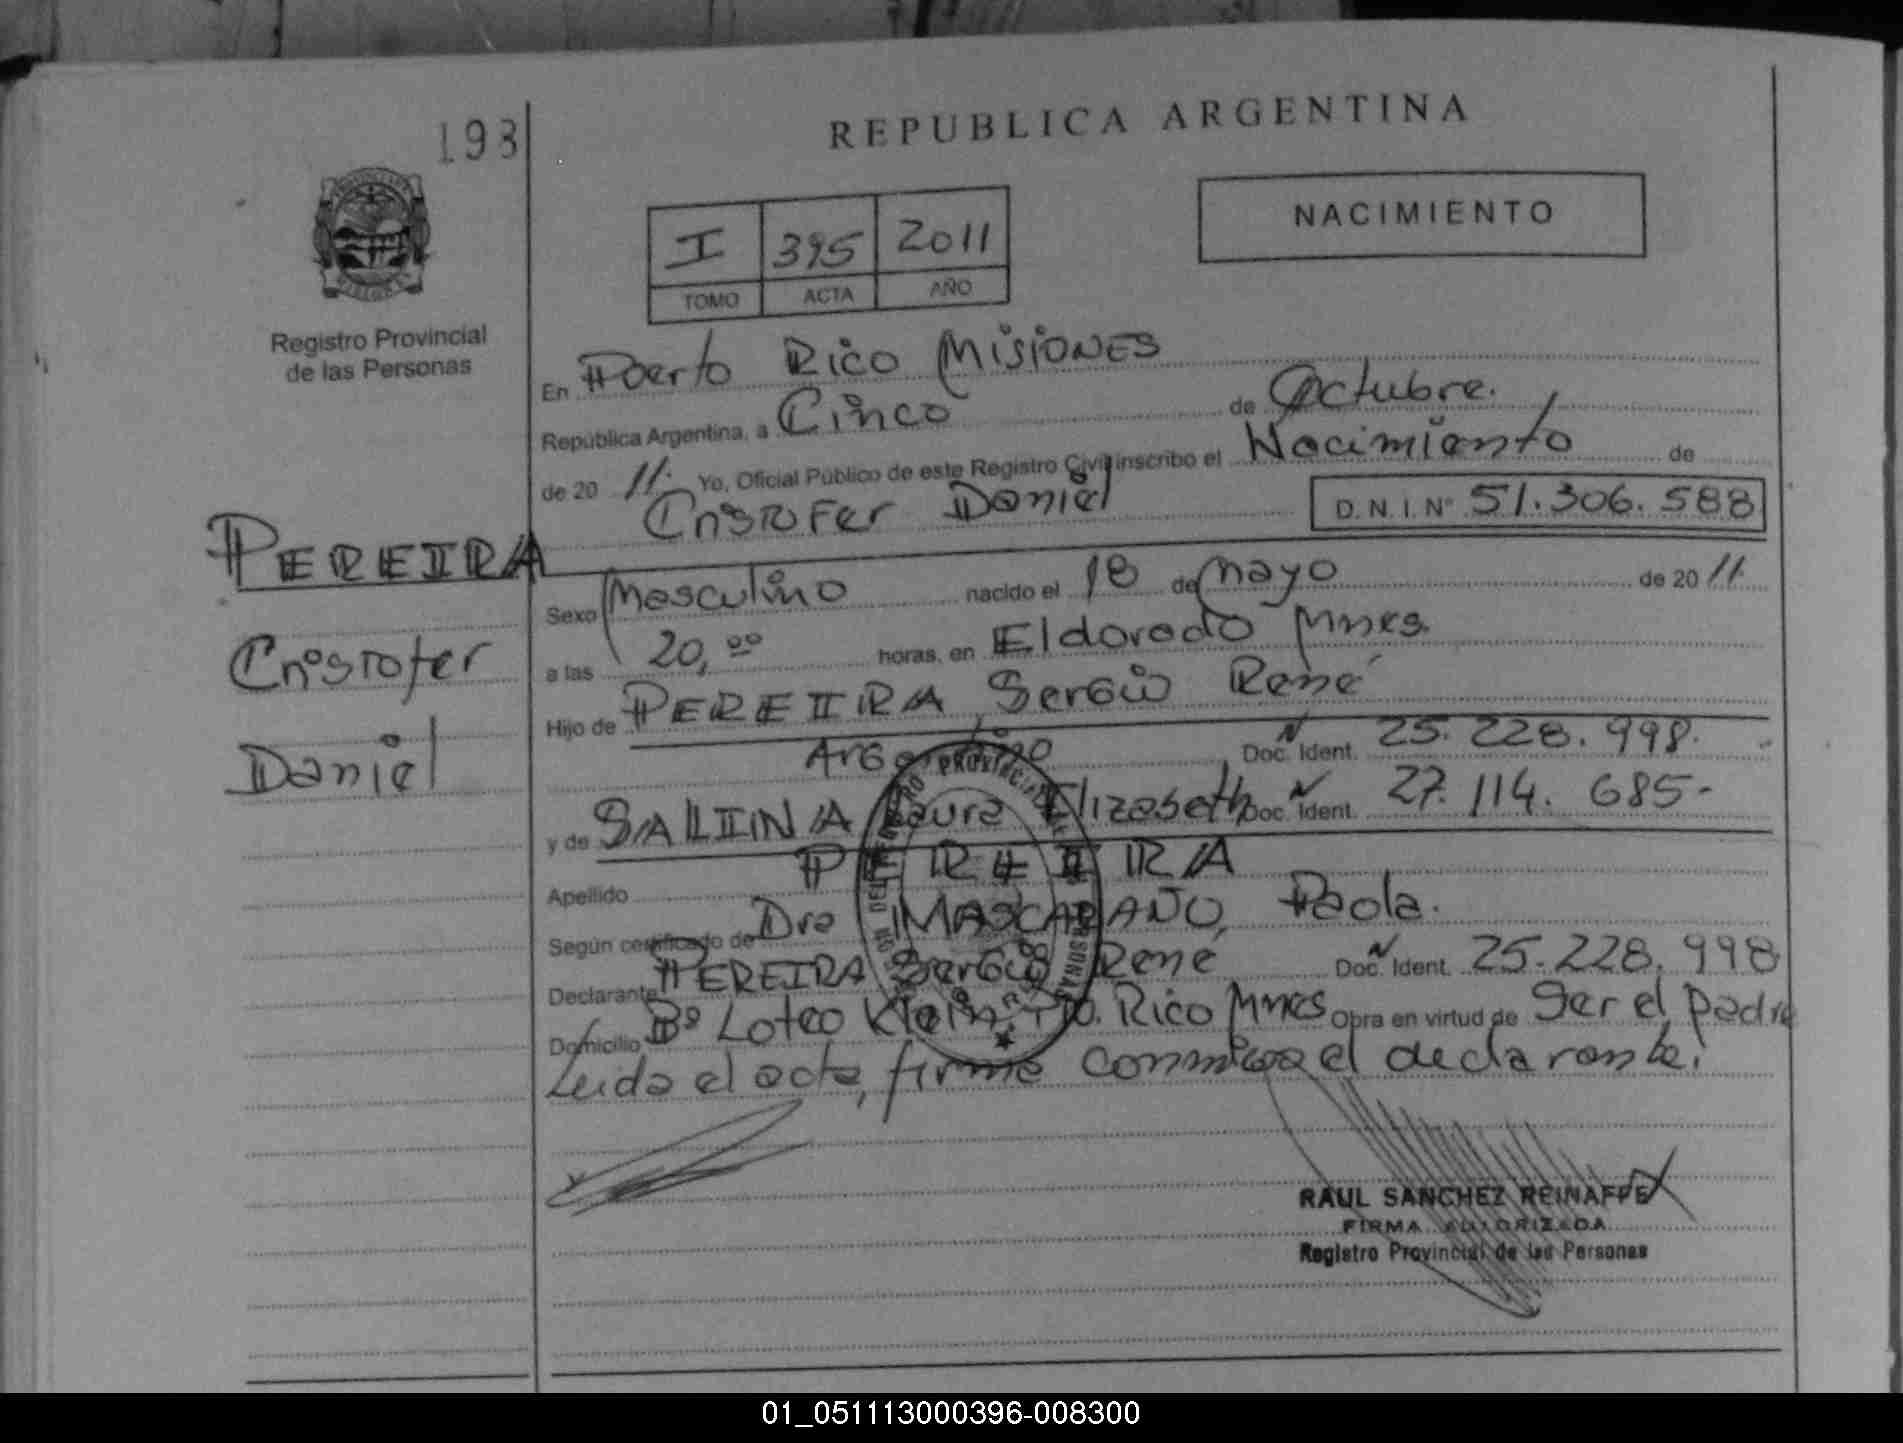 198
REPUBLICA ARGENTINA
NACIMIENTO
I 395 2011
TOMO ACTA AÑO
Registro Provincial
de las Personas
En Puerto Rico Misiones
República Argentina, a Cinco de Octubre.
de 20 11. Yo, Oficial Público de este Registro Civil inscribo el Nacimiento de
Cristofer Daniel D.N.I. Nº 51.306.588
PEREIRA
Cristofer
Daniel
Sexo Masculino nacido el 18 de Mayo de 20 11.
a las 20,ºº horas, en Eldorado Mnes.
Hijo de PEREIRA Sergio René
Argentino Doc. Ident. 25.228.998.
y de SALINA Laura Elizabeth Doc. Ident. 27.114.685-
Apellido PEREIRA
Según certificado de Dra MASCARAÑO, Paola.
Declarante PEREIRA Sergio René Doc. Ident. 25.228.998
Domicilio Bº Loteo Klein Pto. Rico Mnes Obra en virtud de Ser el padre
Leida el acta, firma conmigo el declarante.
RAUL SANCHEZ REINAFFE
FIRMA AUTORIZADA
Registro Provincial de las Personas
01_051113000396-008300